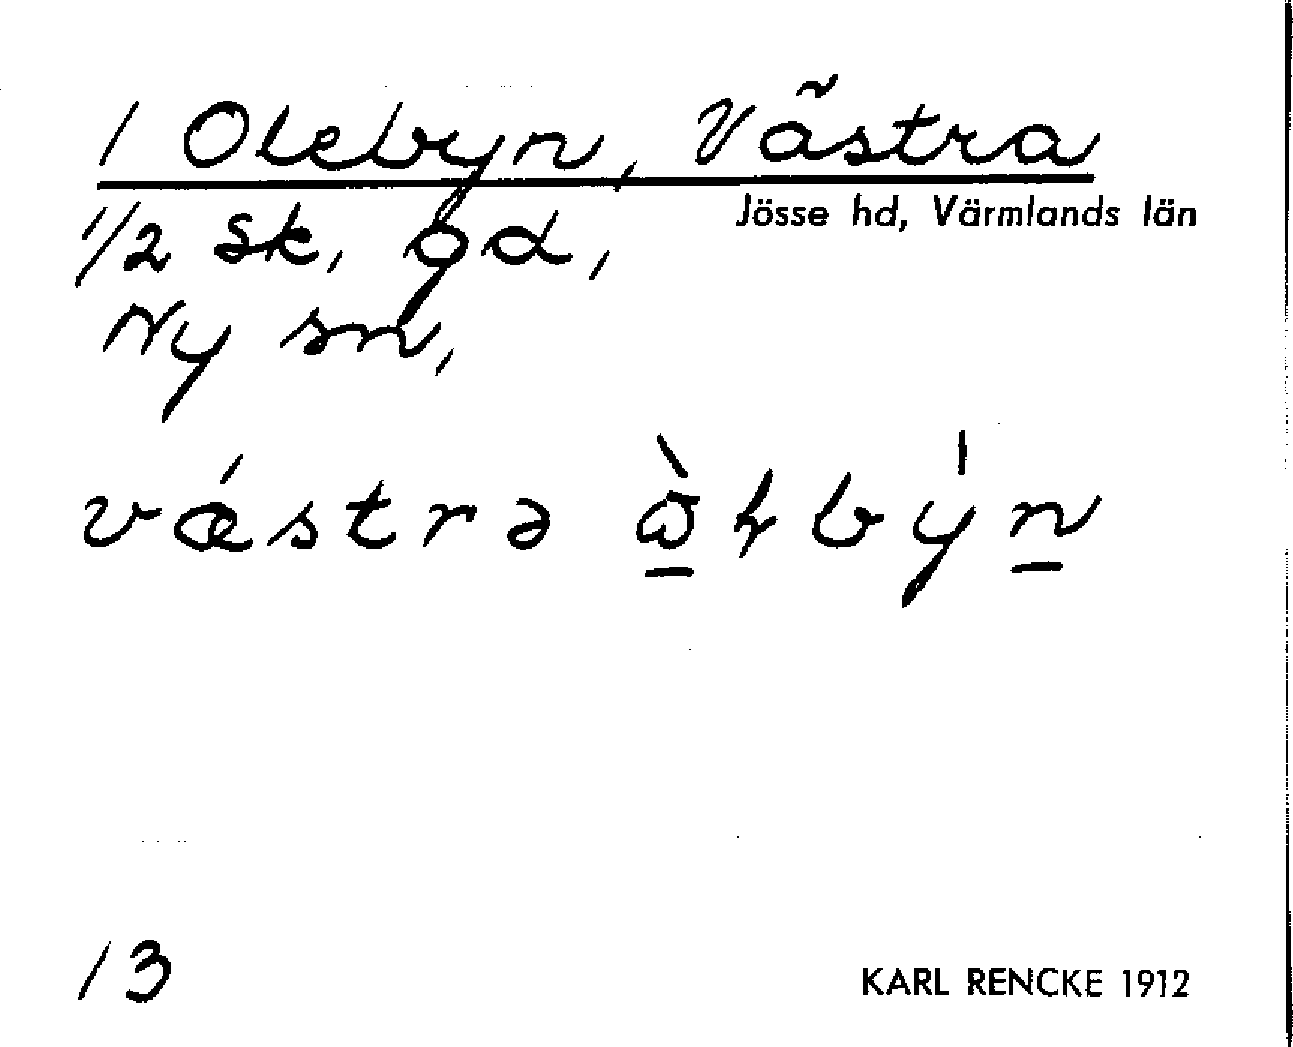 1 Olebyn, Västra
Jösse hd, Värmlands län
1/2 sk, gd,
Ny sn,
vǽstrə
13
KARL RENCKE 1912